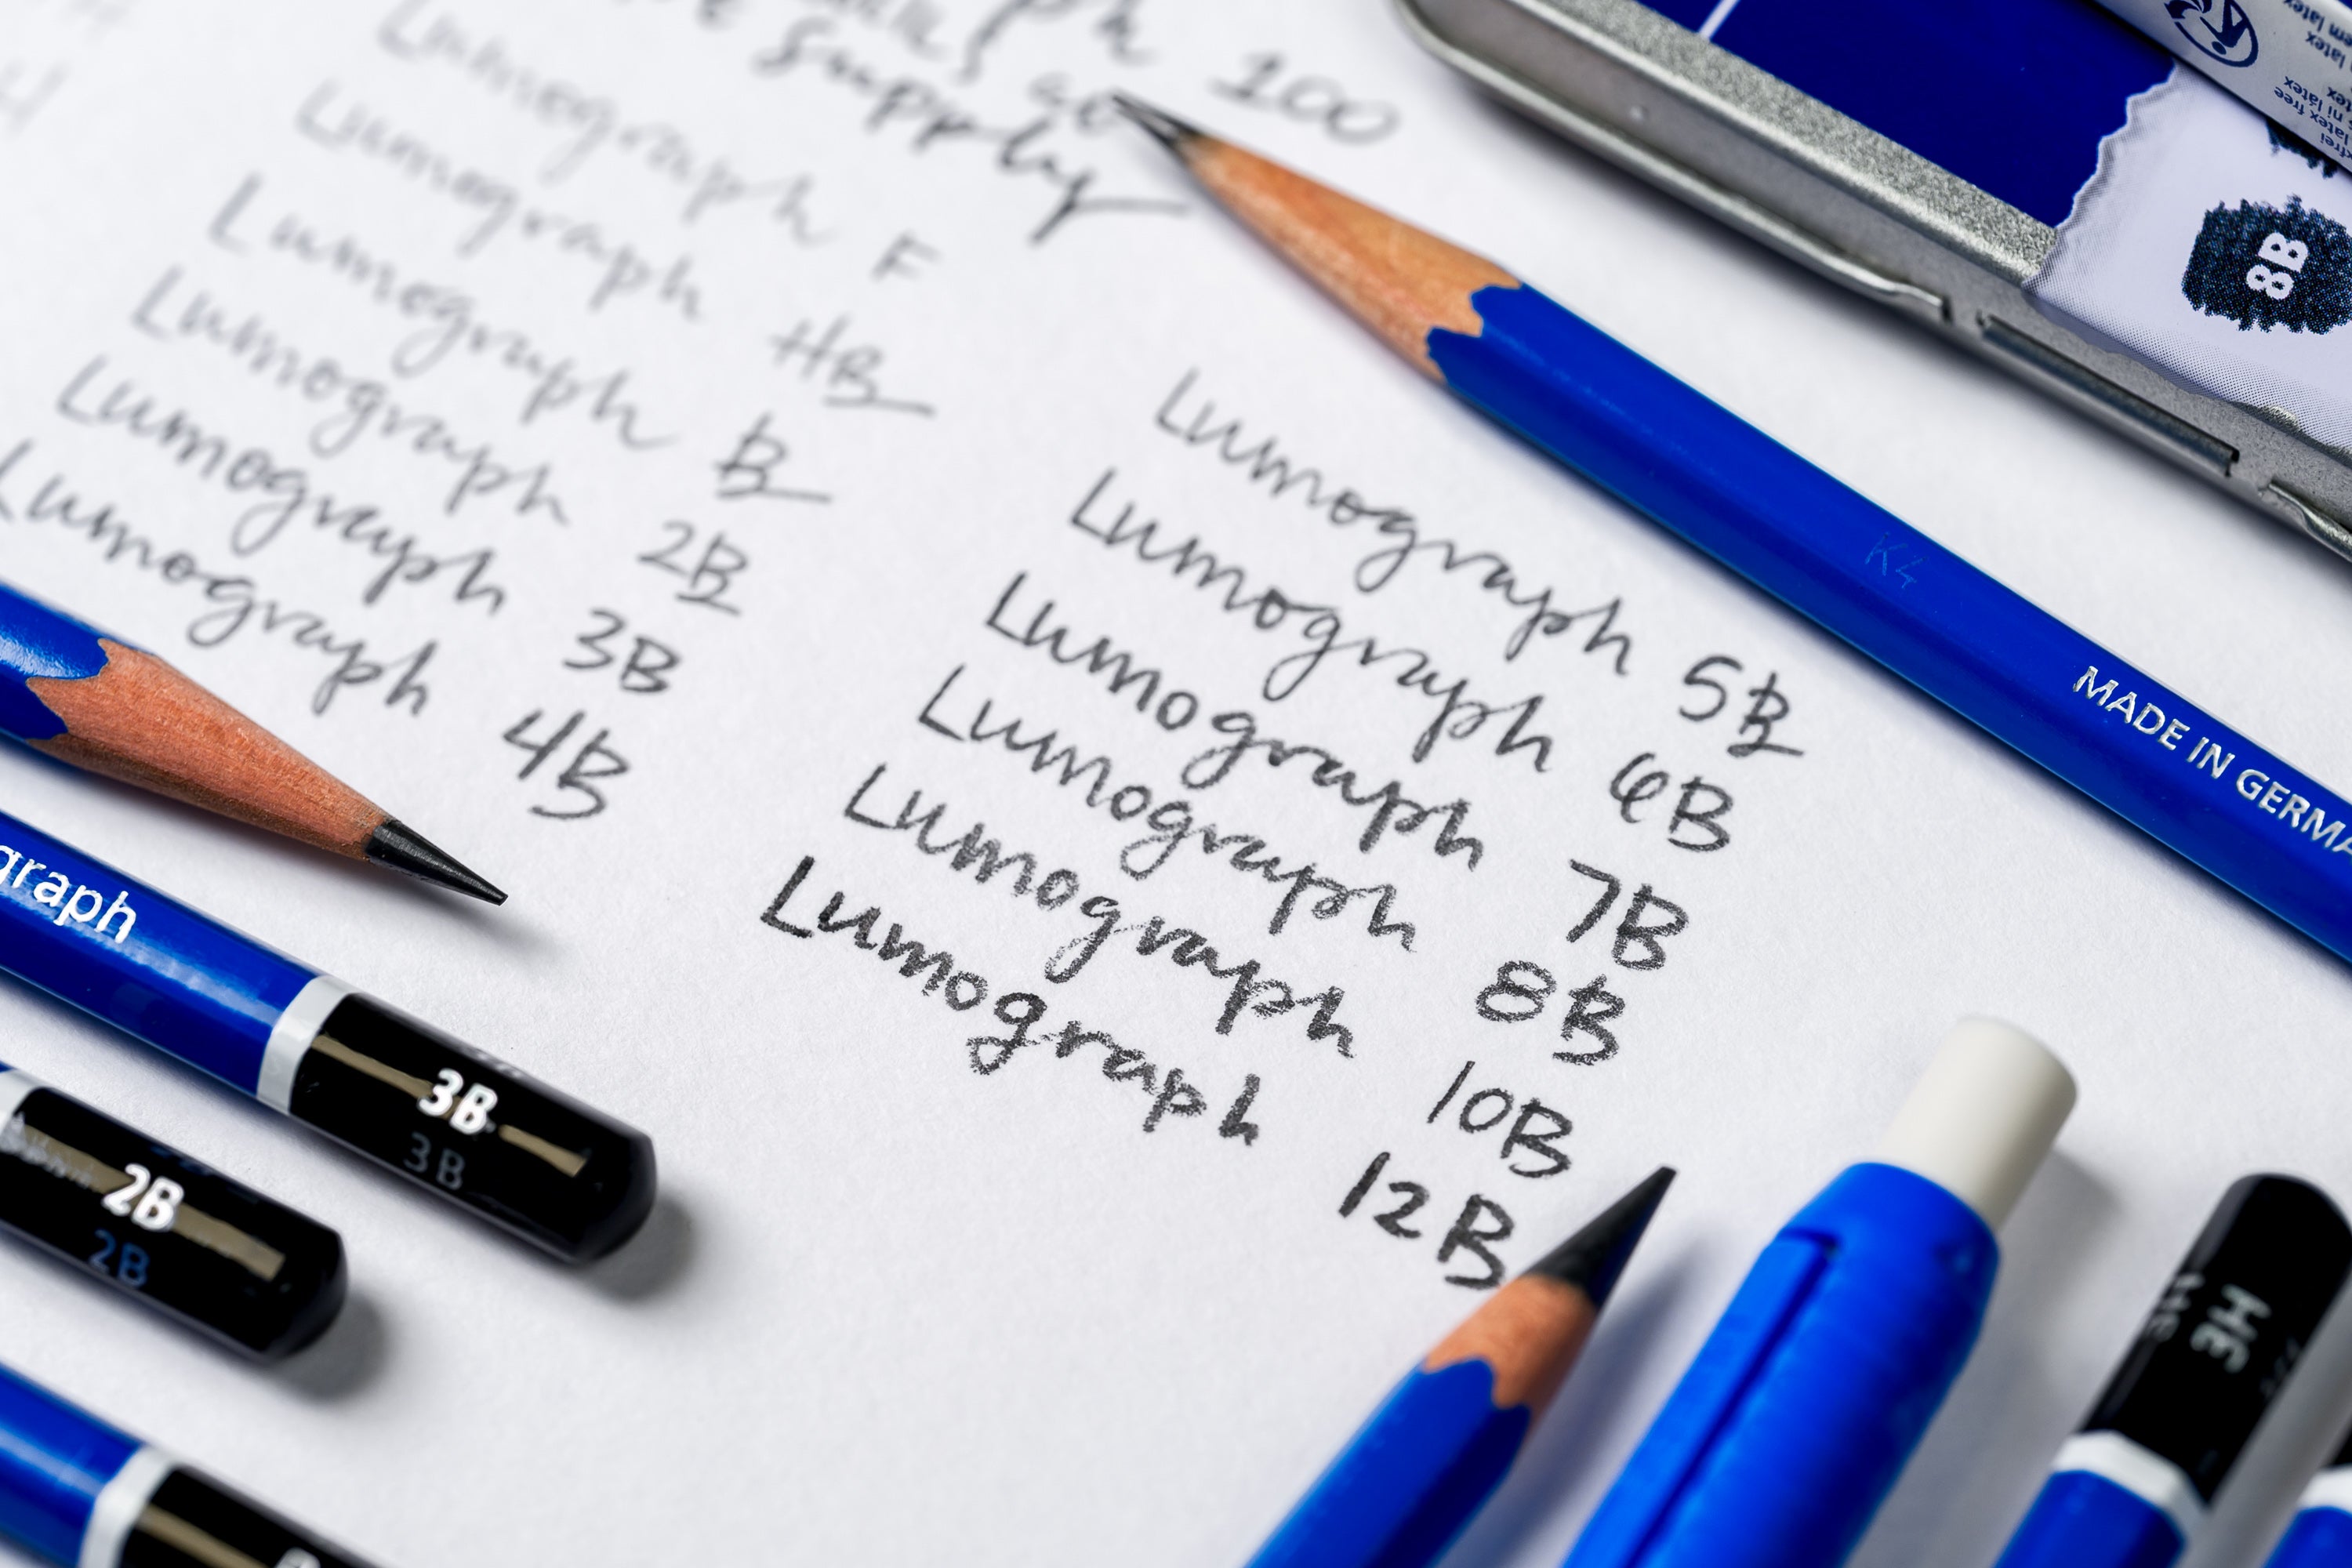 100
supply
Lumograph F
Lumograph HB
Lumograph B
Lumograph 2B
Lumograph 3B
Lumograph 4B
Lumograph 5B
Lumograph 6B
Lumograph 7B
Lumograph 8B
Lumograph 10B
Lumograph 12B
8B
K4
MADE IN GERMA
graph
3B
3B
2B
2B
3H